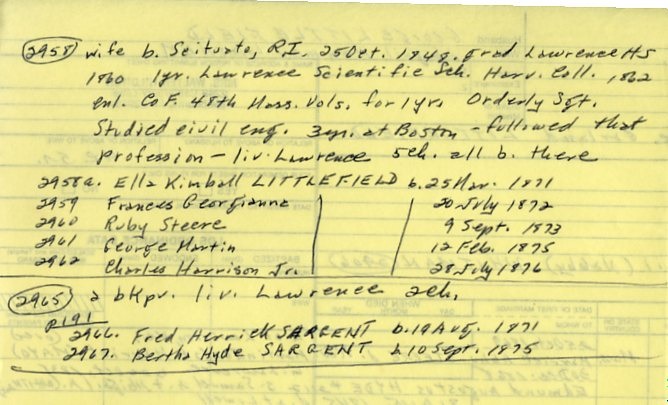 2958 wife b. Scituate, R.I. 25 Oct. 1848. grad Lawrence HS
1860 1yr. Lawrence Scientific Sch. Harv. Coll. 1862
enl. Co F. 48th Mass. Vols. for 1 yr. Orderly Sgt.
Studied civil eng. 3 yrs. at Boston - followed that
profession - liv. Lawrence 5ch. all b. there
2958a. Ella Kimball LITTLEFIELD b. 25 Mar. 1871
2959 Frances Georgianna 20 July 1872
2960 Ruby Steere 9 Sept. 1873
2961 George Martin 12 Feb. 1875
2962 Charles Harrison Jr. 28 July 1876
2965 a bkpr. liv. Lawrence 2ch.
p191
2966. Fred Herrick SARGENT b. 19 Aug. 1871
2967. Bertha Hyde SARGENT b. 10 Sept. 1875